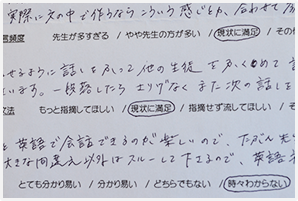 実際に文の中で作るならこういう感じとか、合わせて
言頻度 先生が多すぎる / やや先生の方が多い / 現状に満足 / その
せるように話しをふって他の生徒をふくめて
います。一段落したらさりげなくまた次の話しを
文法 もっと指摘してほしい / 現状に満足 / 指摘せず流してほしい / そ
と英語で会話できるのが楽しいので、たぶん先
大きな間違え以外はスルーして下さるので、英語
とても分かり易い / 分かり易い / どちらでもない / 時々わからない